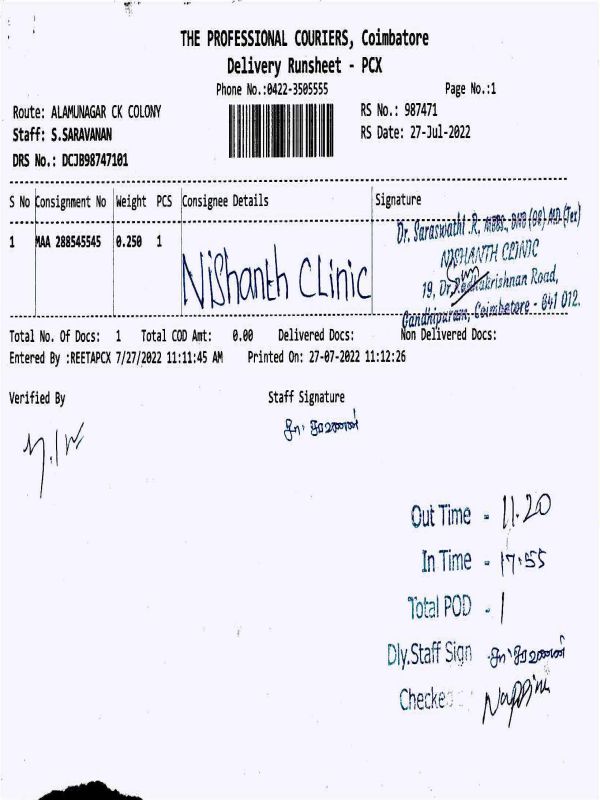 THE PROFESSIONAL COURIERS, Coimbatore
Delivery Runsheet - PCX
Phone No.:0422-3505555 Page No.:1
Route: ALAMUNAGAR CK COLONY RS No.: 987471
Staff: S.SARAVANAN RS Date: 27-Jul-2022
DRS No.: DCJB98747101
S No Consignment No Weight PCS Consignee Details Signature
1 MAA 288545545 0.250 1 Nishanth Clinic
Dr. Saraswathi .R. MBBS., DNB (OG) MD (Tex)
NISHANTH CLINIC
19, Dr. Radhakrishnan Road,
Gandhipuram, Coimbatore - 641 012.
Total No. Of Docs: 1 Total COD Amt: 0.00 Delivered Docs: Non Delivered Docs:
Entered By :REETAPCX 7/27/2022 11:11:45 AM Printed On: 27-07-2022 11:12:26
Verified By Staff Signature
சா. சரவணன்
Out Time - 11.20
In Time - 17.55
Total POD - 1
Dly.Staff Sign - சா. சரவணன்
Checked